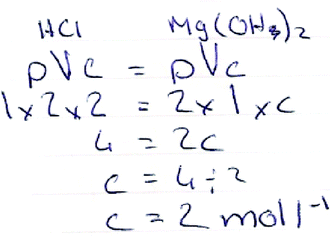 HCl Mg(OH)2
pVc = pVc
1x2x2 = 2x1xc
4 = 2c
c = 4÷2
c = 2 mol l⁻¹